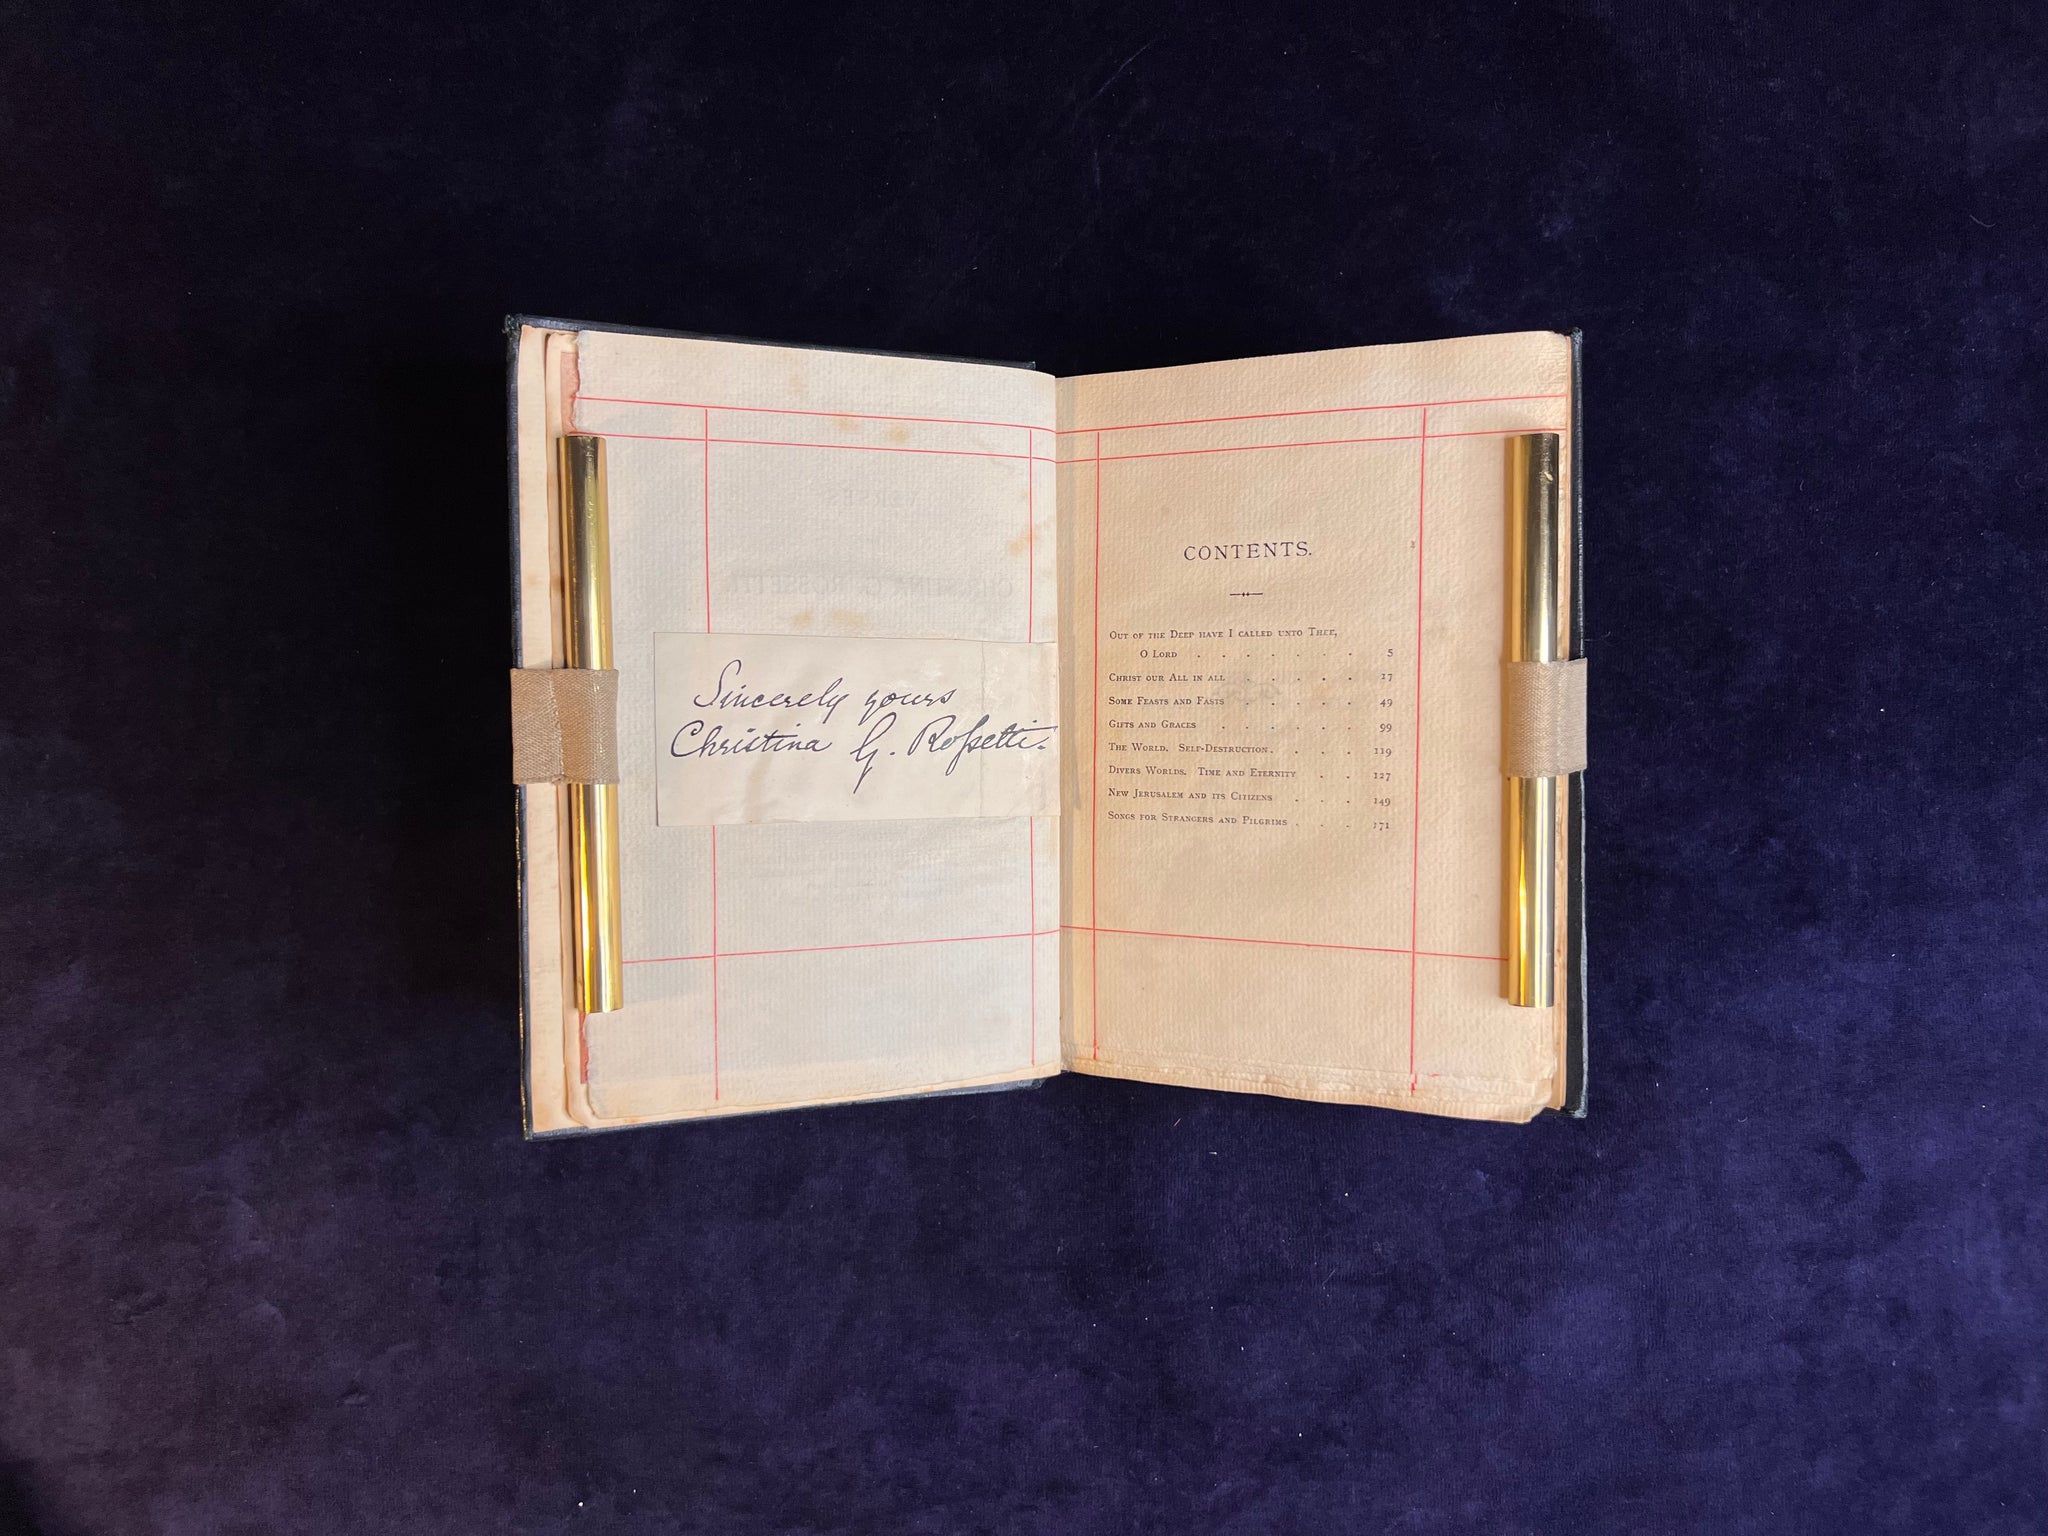 Sincerely yours
Christina G. Rossetti.
CONTENTS.
OUT OF THE DEEP HAVE I CALLED UNTO THEE,
O LORD . . . . . . . 5
CHRIST OUR ALL IN ALL . . . . . 17
SOME FEASTS AND FASTS . . . . . 49
GIFTS AND GRACES . . . . . . 99
THE WORLD. SELF-DESTRUCTION . . . . 119
DIVERS WORLDS. TIME AND ETERNITY . . 127
NEW JERUSALEM AND ITS CITIZENS . . . 149
SONGS FOR STRANGERS AND PILGRIMS . . . 171